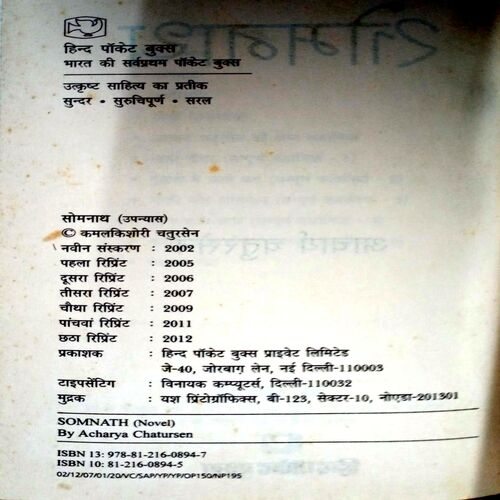 हिन्द पॉकेट बुक्स
भारत की सर्वप्रथम पॉकेट बुक्स
उत्कृष्ट साहित्य का प्रतीक
सुन्दर • सुरुचिपूर्ण • सरल
सोमनाथ (उपन्यास)
© कमलकिशोरी चतुरसेन
नवीन संस्करण : 2002
पहला रिप्रिंट : 2005
दूसरा रिप्रिंट : 2006
तीसरा रिप्रिंट : 2007
चौथा रिप्रिंट : 2009
पांचवां रिप्रिंट : 2011
छठा रिप्रिंट : 2012
प्रकाशक : हिन्द पॉकेट बुक्स प्राइवेट लिमिटेड
जे-40, जोरबाग़ लेन, नई दिल्ली-110003
टाइपसेटिंग : विनायक कम्प्यूटर्स, दिल्ली-110032
मुद्रक : यश प्रिंटोग्राफिक्स, बी-123, सेक्टर-10, नोएडा-201301
SOMNATH (Novel)
By Acharya Chatursen
ISBN 13: 978-81-216-0894-7
ISBN 10: 81-216-0894-5
02/12/07/01/20/VC/SAP/YP/YP/OP150/NP195